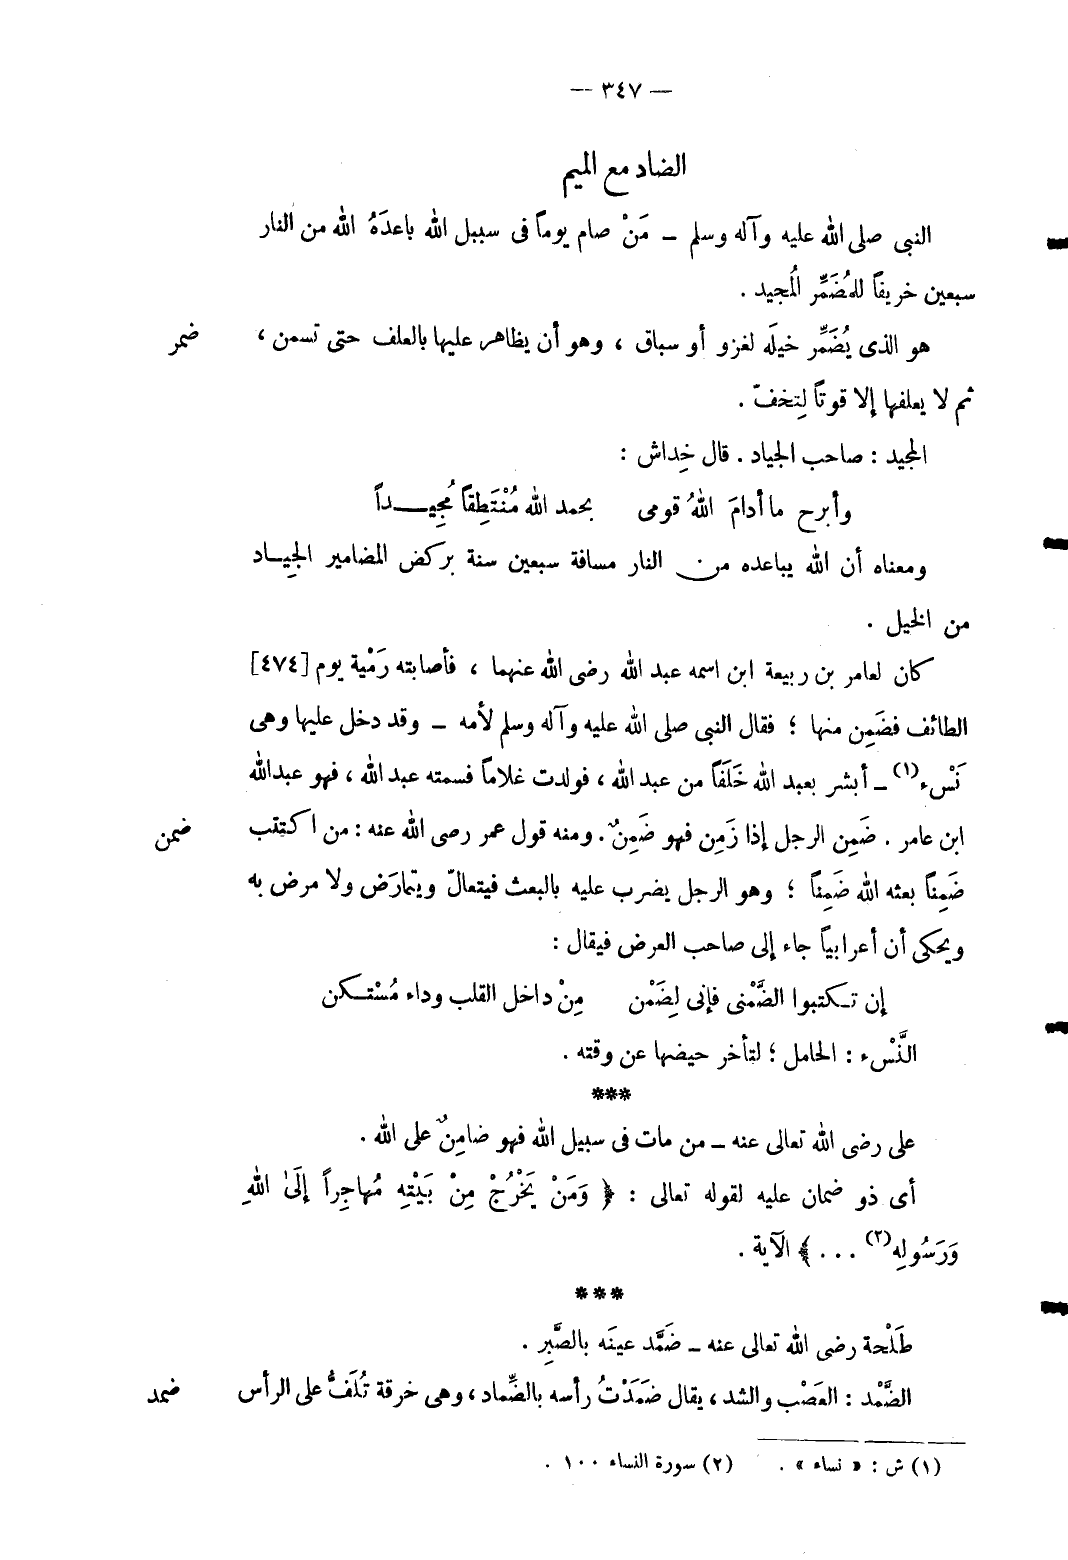 — ٣٤٧ —
الضاد مع الميم
النبى صلى الله عليه وآله وسلم ــ مَنْ صام يوماً فى سبيل الله باعدَهُ الله من النار
سبعين خريفاً للمُضَمِّر المُجيد .
هو الذى يُضَمِّر خيلَه لغزو أو سباق ، وهو أن يظاهر عليها بالعلف حتى تسمن ،
ضمر
ثم لا يعلفها إلا قوتاً لِتخفّ .
المجيد : صاحب الجياد . قال خِداش :
وأبرح ما أدامَ اللهُ قومى بحمد الله مُنْتَطِقاً مُجِيـــداً
ومعناه أن الله يباعده من النار مسافة سبعين سنة بركض المضامير الجِيـاد
من الخيل .
كان لعامر بن ربيعة ابن اسمه عبد الله رضى الله عنهما ، فأصابته رَمْية يوم [٤٧٤]
الطائف فضَمِن منها ؛ فقال النبى صلى الله عليه وآله وسلم لأمه ــ وقد دخل عليها وهى
نَسْء(١) ــ أبشر بعبد الله خَلَفاً من عبد الله ، فولدت غلاماً فسمته عبد الله ، فهو عبدالله
ابن عامر . ضَمِن الرجل إذا زَمِن فهو ضَمِنٌ . ومنه قول عمر رضى الله عنه : من اكتتب
ضمن
ضَمِناً بعثه الله ضَمِناً ؛ وهو الرجل يضرب عليه بالبعث فيتعالّ ويتمارَض ولا مرض به
ويحكى أن أعرابياً جاء إلى صاحب العرض فيقال :
إن تـكتبوا الضَّمْنى فإنى لِضَمْن مِنْ داخل القلب وداء مُسْتـكن
النَّسْء : الحامل ؛ لتأخر حيضها عن وقته .
***
على رضى الله تعالى عنه ــ من مات فى سبيل الله فهو ضامِنٌ على الله .
أى ذو ضمان عليه لقوله تعالى : ﴿ وَمَنْ يَخْرُجْ مِنْ بَيْتِهِ مُهاجِراً إِلَىٰ اللهِ
وَرَسُولِهِ(٢) ... ﴾ الآية .
***
طَلْحة رضى الله تعالى عنه ــ ضَمَّد عينَه بالصَّبِر .
الضَّمْد : العَصْب والشد ، يقال ضَمَدْتُ رأسه بالضِّماد ، وهى خرقة تُلَفُّ على الرأس
ضمد
(١) ش : « نساء » . (٢) سورة النساء ١٠٠ .